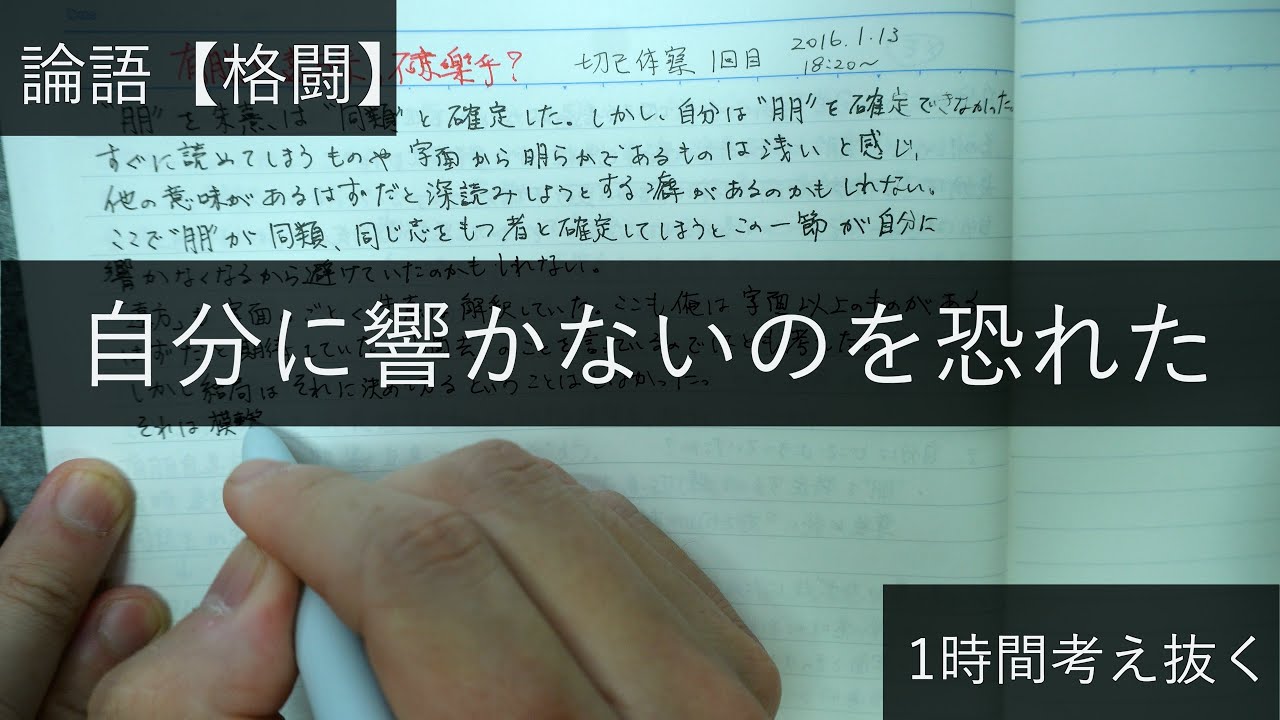 論語【格闘】
不亦樂乎?
切己体察 1回目
2016.1.13
18:20〜
"朋"を朱熹は"同類"と確定した。しかし、自分は"朋"を確定できなかった
すぐに読めてしまうものや字面から明らかであるものは浅いと感じ、
他の意味があるはずだと深読みしようとする癖があるのかもしれない。
ここで"朋"が同類、同じ志をもつ者と確定してしまうとこの一節が自分に
響かなくなるから避けていたのかもしれない。
自分に響かないのを恐れた
解釈していた。ここも俺は字面以上のものがある
しかし結局はそれに決め
それは
1時間考え抜く